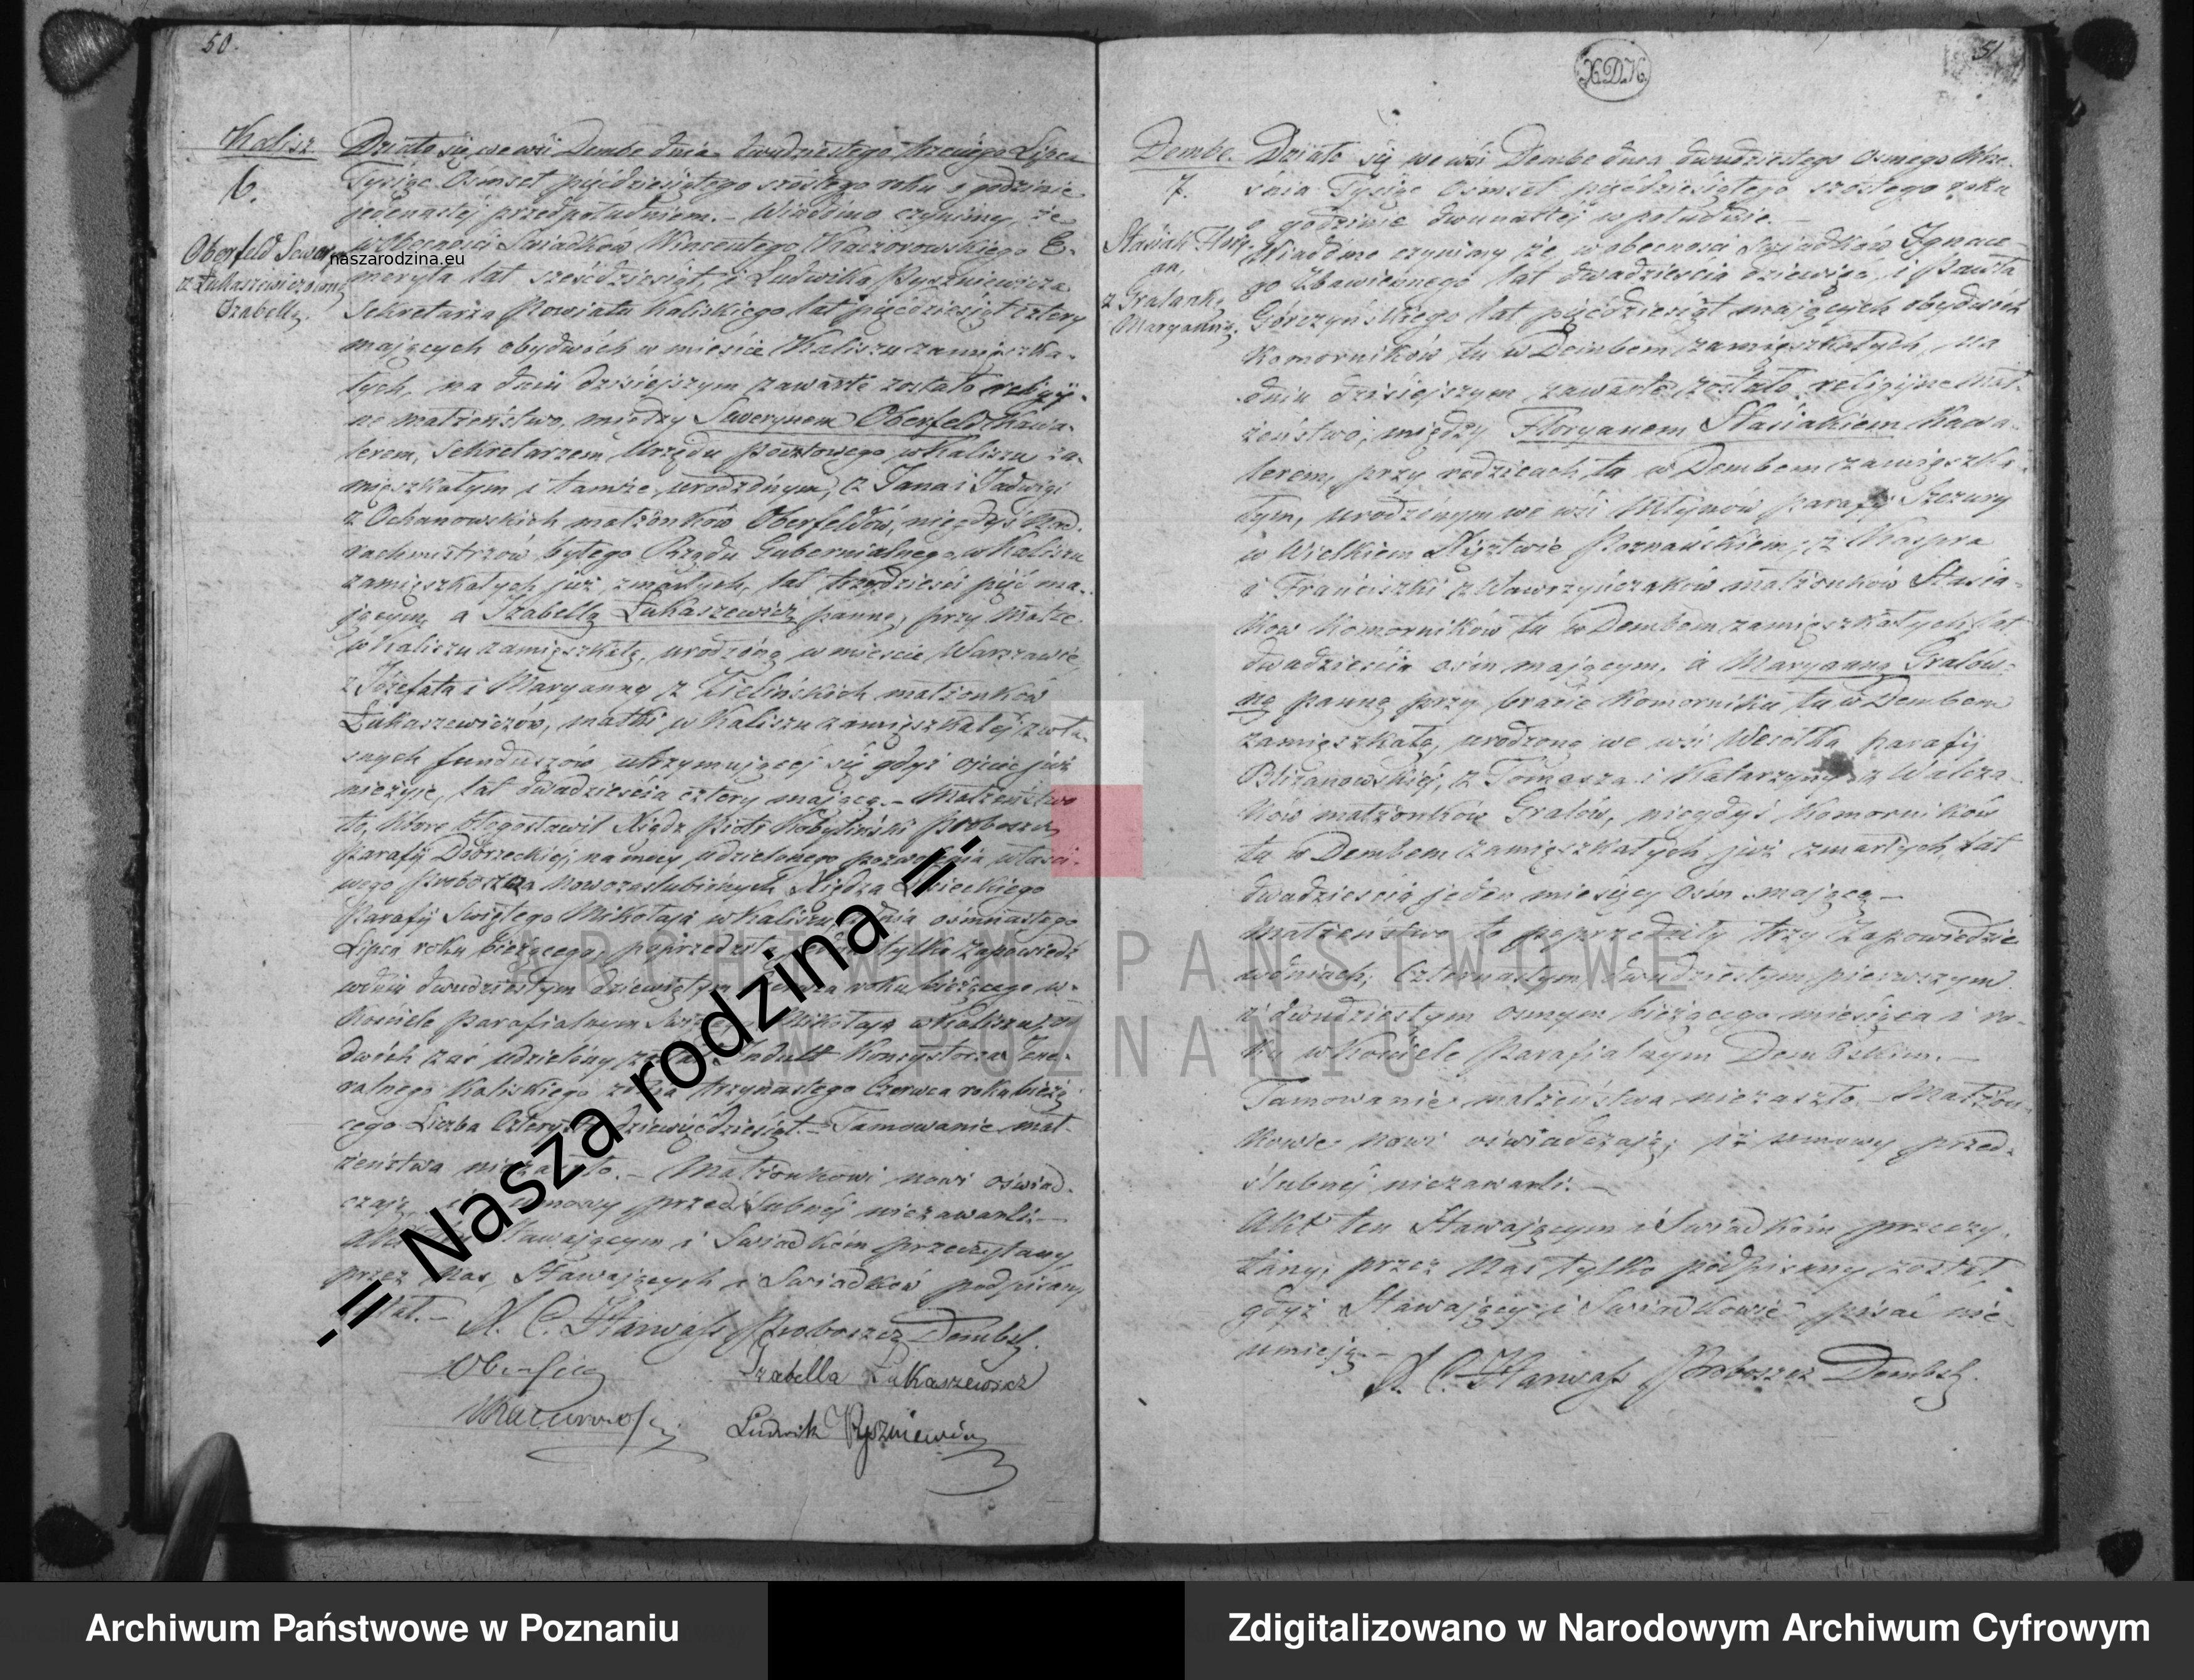 50.
Kalisz
6.
Oberfeld Sewer
z Łukaszewiczówną
Izabellą.
naszarodzina.eu
Działo się we wsi Dembe dnia dwudziestego trzeciego Lipca
Tysiąc Osmset pięćdziesiątego szóstego roku o godzinie
jedenastej przed południem. – Wiadomo czyniemy, że
w Obecności Swiadków Wincentego Kaczorowskiego E-
meryta lat sześćdziesiąt, i Ludwika Pyszniewicza
Sekretarza Powiatu Kaliskiego lat pięćdziesiąt cztery
mających obydwóch w mieście Kaliszu zamieszka-
łych, na dniu dzisiejszym zawarte zostało religij-
ne małżeństwo, między Sewerynem Oberfeld Kawa-
lerem, Sekretarzem Urzędu Pocztowego w Kaliszu za-
mieszkałym i tamże urodzonym, z Jana i Jadwigi
z Ochanowskich małżonków Oberfeldów, niegdyś Nad-
rachmistrzów byłego Rządu Gubernialnego w Kaliszu
zamieszkałych już zmarłych, lat trzydzieści pięć ma-
jącym, a Izabellą Łukaszewicz panną, przy Matce
w Kaliszu zamieszkałą, urodzoną w mieście Warszawie,
z Józefata i Maryanny z Zielińskich małżonków
Łukaszewiczów, matki w Kaliszu zamieszkałej z wła-
snych funduszów utrzymującej się gdyż ojciec już
nieżyje, lat dwadzieścia cztery mającą. – Małżeństwo
to, które błogosławił Xiądz Piotr Kobyliński Proboszcz
Parafij Dobrzeckiej, na mocy udzielonego pozwolenia właści-
wego Proboszcza Nowozaslubionych Xiędza
Parafij Swiętego Mikołaja w Kaliszu, z dnia osmnastego
Lipca roku bieżącego, poprzedziła jedna tylko zapowiedź
w dniu dwudziestym dziewiątym Czerwca roku bieżącego w
Kościele Parafialnym Mikołaja w Kaliszu, od
dwóch zaś udzielony został Indult Konsystorza Jene-
ralnego Kaliskiego z dnia trzynastego Czerwca roku bieżą-
cego Liczba Czterysta dziewięćdziesiąt. – Tamowanie mał-
żeństwa niezaszło. – Małżonkowi nowi oświad-
czają, iż umowy przedślubnej niezawarli. –
Akt ten Stawającym i Swiadkom przeczytany
przez Nas, Stawających i Swiadków podpisany
został. –
X. C. Harwass Proboszcz Dembsk.
Oberfeld
Izabella Łukaszewicz
Kaczorowski
Ludwik Pyszniewicz
X.D.K.
51
Dembe.
7.
Stasiak Flory-
an,
z Gralanką
Maryanną.
Działo się we wsi Dembe dnia dwudziestego osmego Wrze-
śnia Tysiąc Osmset pięćdziesiątego szóstego roku
o godzinie dwunastej w południe. –
Wiadomo czyniemy że w obecności Swiadków Ignace-
go Zbawiennego lat dwadzieścia dziewięć, i Pawła
Górczyńskiego lat pięćdziesiąt mających obydwóch
Komorników tu w Dembem zamieszkałych, na
dniu dzisiejszym zawarte zostało religijne mał-
żeństwo, między Floryanem Stasiakiem Kawa-
lerem, przy rodzicach tu w Dembem zamieszka-
łym, urodzonym we wsi Młynów parafij Szczury
w Wielkiem Xięztwie Poznańskiem, z Kaspra
i Franciszki z Wawrzyńczaków małżonków Stasia-
ków Komorników tu w Dembem zamieszkałych, lat
dwadzieścia osm mającym, a Maryanną Gralów-
ną panną przy bracie Komorniku tu w Dembem
zamieszkałą, urodzoną we wsi Wesołka parafij
Blizanowskiéj, z Tomasza i Katarzyny z Walcza-
ków małżonków Gralów, niegdyś Komorników
tu w Dembem zamieszkałych już zmarłych, lat
dwadzieścia jeden miesięcy osm mającą –
Małżeństwo to poprzedziły trzy Zapowiedzie
w dniach, Czternastym, dwudziestym pierwszym
i dwudziestym osmym bieżącego miesiąca i ro-
ku w Kościele Parafialnym Dembskim. –
Tamowanie małżeństwa niezaszło – Małżon-
kowie nowi oświadczają, iż umowy przed-
ślubnej niezawarli. –
Akt ten Stawającym i Swiadkom przeczy-
tany, przez Nas tylko podpisany został,
gdyż Stawający i Swiadkowie pisać nie
umieją. –
X. C. Harwass Proboszcz Dembsk.
ARCHIWUM PAŃSTWOWE
W POZNANIU
-=| Nasza rodzina |=-
Archiwum Państwowe w Poznaniu
Zdigitalizowano w Narodowym Archiwum Cyfrowym